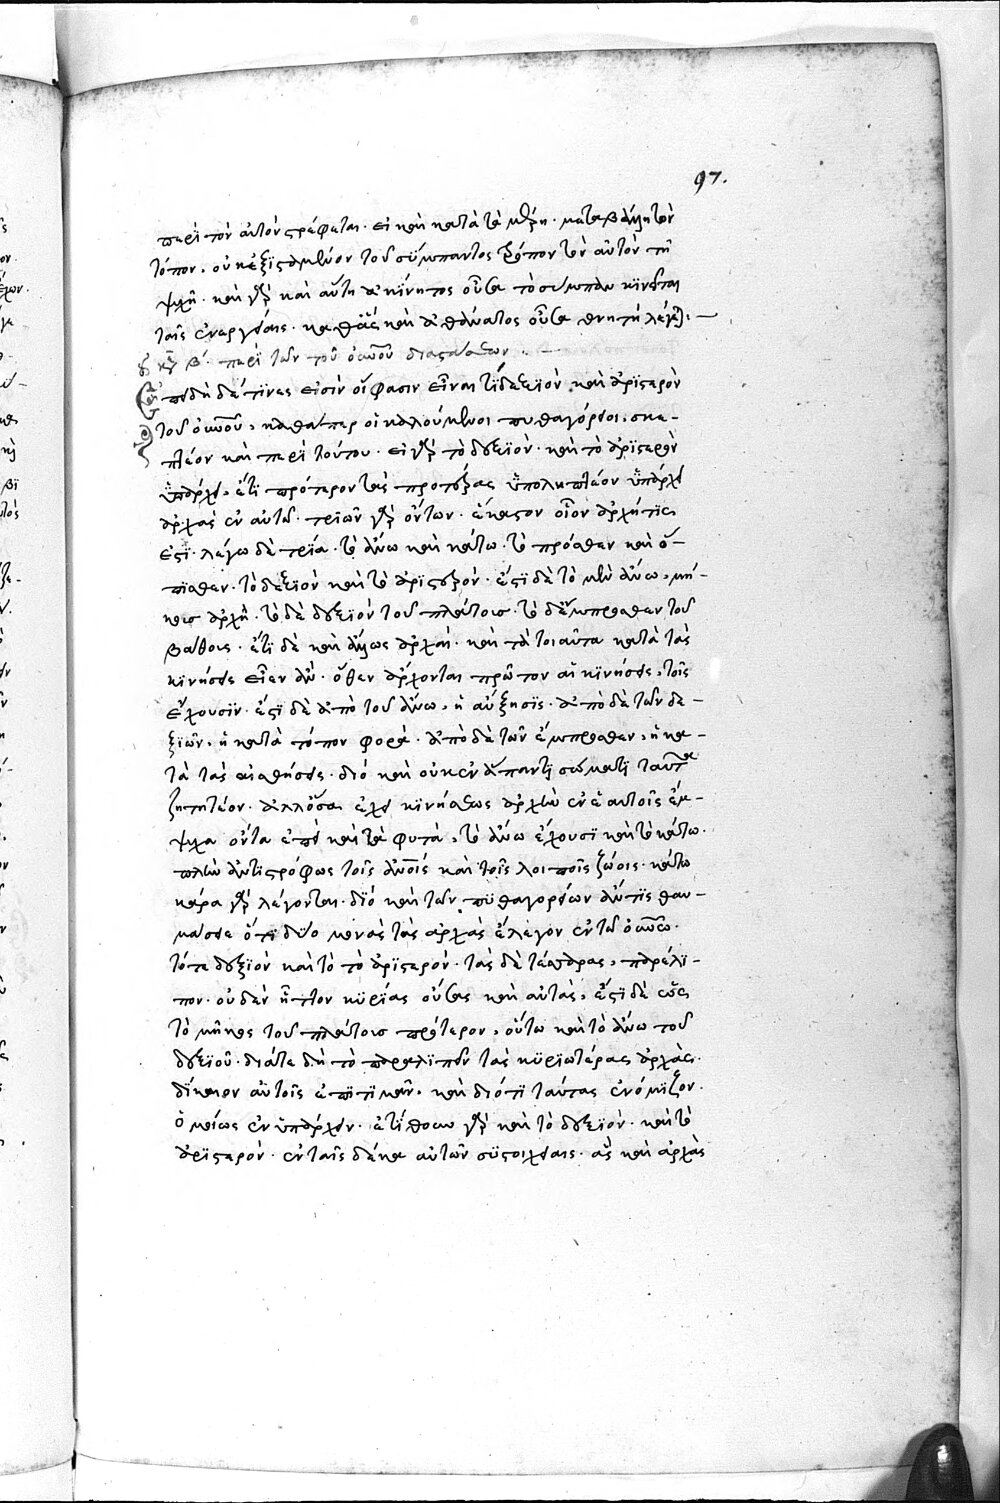 97.
περὶ τὸν αὐτὸν στρέφεται· εἰ καὶ κατὰ τὰ μέρη· μεταβάλλει τὸν
τόπον· οὐκ ἐξισθμέον τοῦ σύμπαντος τρόπον τὸν αὐτὸν τῇ
ψυχῇ· καὶ γὰρ καὶ αὕτη ἀκίνητος οὖσα τὸ σύμπαν κινεῖται
ταῖς ἐνεργείαις· καθὰ καὶ ἀθάνατος οὖσα θνητὴ λέγεται:—
β΄ περὶ τῶν τοῦ οὐρανοῦ διαστάσεων·
Ἐπειδὴ δέ τινες εἰσὶν οἵ φασιν εἶναί τι δεξιὸν καὶ ἀριστερὸν
τοῦ οὐρανοῦ, καθάπερ οἱ καλούμενοι πυθαγόρειοι, σκε-
πτέον καὶ περὶ τούτου· εἰ γὰρ τὸ δεξιὸν· καὶ τὸ ἀριστερὸν
ὑπάρχει, ἔτι πρότερον τὰς προτέρας ὑποληπτέον ὑπάρχειν
ἀρχὰς ἐν αὐτῷ· τριῶν γὰρ ὄντων· ἕκαστον οἷον ἀρχή τις
ἐστί· λέγω δὲ τρία· τὸ ἄνω καὶ κάτω· τὸ πρόσθεν καὶ ὄ-
πισθεν· τὸ δεξιὸν καὶ τὸ ἀριστερόν· ἔστι δὲ τὸ μὲν ἄνω, μή-
κους ἀρχὴ· τὸ δὲ δεξιὸν τοῦ πλάτους· τὸ δ' ἔμπροσθεν τοῦ
βάθους· ἔτι δὲ καὶ ἄλλως ἀρχαί· καὶ τὰ τοιαῦτα κατὰ τὰς
κινήσεις εἶεν ἄν· ὅθεν ἄρχονται πρῶτον αἱ κινήσεις, τοῖς
ἔχουσιν· ἔστι δὲ ἀπὸ τοῦ ἄνω, ἡ αὔξησις· ἀπὸ δὲ τῶν δε-
ξιῶν, ἡ κατὰ τόπον φορά· ἀπὸ δὲ τῶν ἔμπροσθεν, ἡ κα-
τὰ τὰς αἰσθήσεις· διὸ καὶ οὐκ ἐν ἅπαντι σώματι ταῦτα
ζητητέον· ἀλλ' ὅσα ἔχει κινήσεως ἀρχὴν ἐν ἑαυτοῖς ἔμ-
ψυχα ὄντα ἐπεὶ καὶ τὰ φυτὰ, τὸ ἄνω ἔχουσι καὶ τὸ κάτω·
πλὴν ἀντιστρόφως τοῖς ἀνοις καὶ τοῖς λοιποῖς ζώοις· κάτω
κάρα γὰρ λέγονται· διὸ καὶ τῶν πυθαγορείων ἄν τις θαυ-
μάσειε ὅτι δύο μόνας τὰς ἀρχὰς ἔλεγον ἐν τῷ οὐρανῷ·
τότε δεξιὸν καὶ τὸ τὸ ἀριστερόν· τὰς δὲ τέσσαρας, παρέλι-
πον· οὐδὲν ἧττον κυρίας οὔσας καὶ αὐτὰς, ἔστι δὲ ὡς
τὸ μῆκος τοῦ πλάτους πρότερον, οὕτω καὶ τὸ ἄνω τοῦ
δεξιοῦ· διάτε δὴ τὸ παραλιπεῖν τὰς κυριωτέρας ἀρχὰς·
δίκαιον αὐτοῖς ἐπιτιμᾶν, καὶ διότι ταύτας ἐνόμιζον·
ὁμοίως ἐν ὑπάρχειν· ἐτίθουν γὰρ καὶ τὸ δεξιὸν· καὶ τὸ
ἀριστερόν· ἐν ταῖς δέκα αὐτῶν συστοιχίαις· ἃς καὶ ἀρχὰς